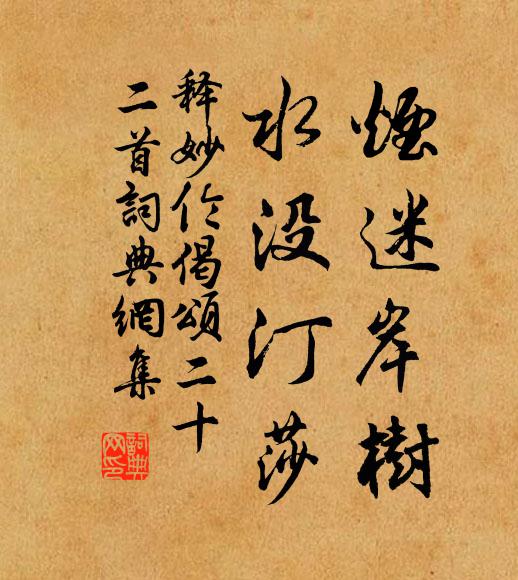 煙迷岸樹
水没汀莎
释妙伦偈頌二十
二首詞典網集
詞典網印